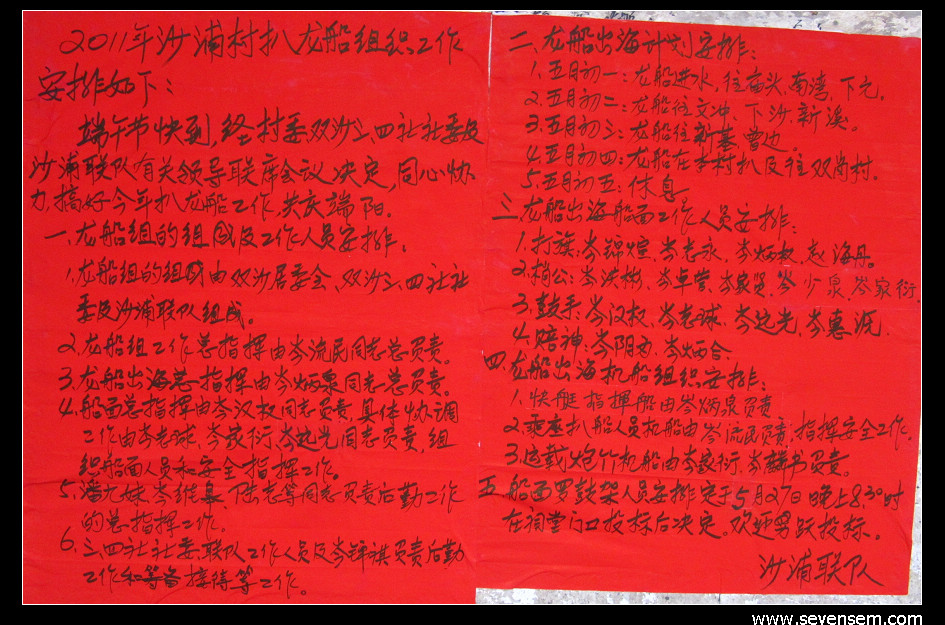 2011年沙浦村扒龙船组织工作
安排如下：
端午节快到，经村委双沙三、四社社委及
沙浦联队有关领导联席会议决定，同心协
力，搞好今年扒龙船工作，共庆端阳。
一、龙船组的组成及工作人员安排。
1.龙船组的组成由双沙居委会、双沙三、四社社
委及沙浦联队组成。
2.龙船组工作总指挥由岑流民同志总负责。
3.龙船出海总指挥由岑炳泉同志总负责。
4.船面总指挥由岑汉权同志负责，具体协调
工作由岑志球、岑家衍、岑达光同志负责，组
织船面人员和安全指挥工作。
5.潘九妹、岑继志等同志负责后勤工作
的总指挥工作。
6.三、四社社委、联队工作人员及岑锌祺负责后勤
工作 接待等工作。
二、龙船出海计划安排：
1.五月初一：龙船进水，往庙头、南湾、下元。
2.五月初二：龙船往文冲、下沙、新溪。
3.五月初三：龙船往新基、曹边。
4.五月初四：龙船在本村扒及往双岗村。
5.五月初五：休息
三、龙船出海船面工作人员安排：
1.打旗：岑锦煊、岑志永、岑炳权、赵海丹。
2.梢公：岑洪彬、岑卓营、岑家 、岑少泉、岑家衍.
3.鼓手：岑汉权、岑志球、岑达光、岑惠流.
4.赔神：岑阴南、岑炳合.
四、龙船出海机船组织安排：
1.快艇指挥船由岑炳泉负责
2.乘座扒船人员机船由岑流民负责，指挥安全工作.
3.运载炮竹机船由岑家衍、岑麟书负责。
五、船面罗鼓架人员安排定于5月27日晚上8.30时
在祠堂门口投标后决定。欢迎踊跃投标。
沙浦联队
www.sevensem.com